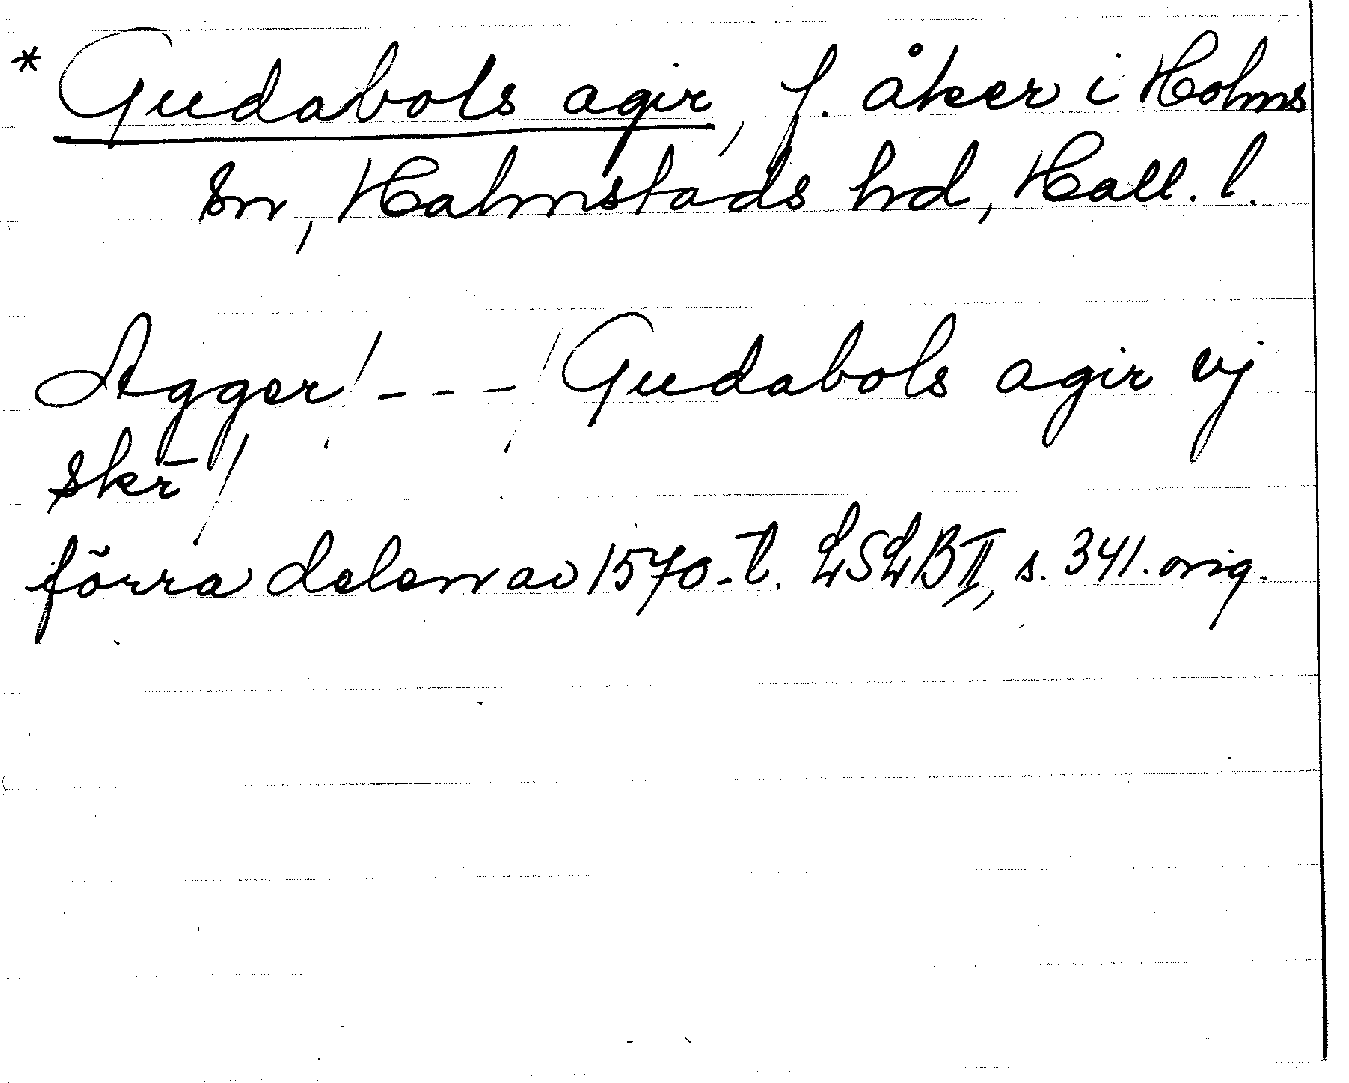 * Gudabols agir, f. åker i Holms
sn, Halmstads hd, Hall. l.
Agger / - - - / Gudabols agir vj
skr̄ /
förra delen av 1570-t. LSLB II, s. 341. orig.